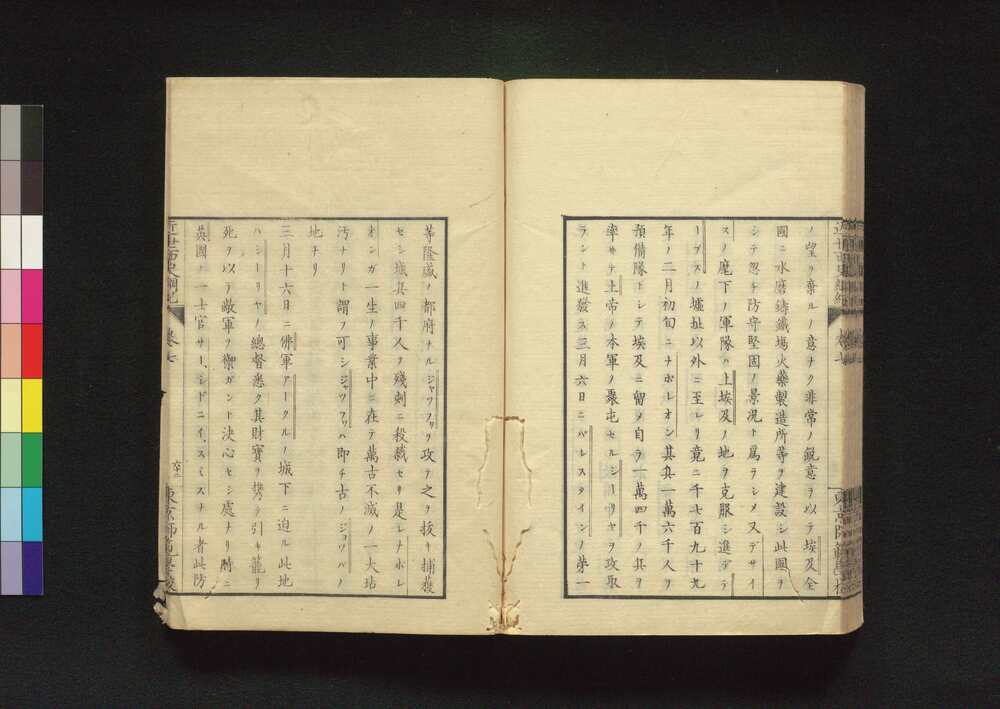 ノ望ヲ棄ルノ意ナク非常ノ鋭意ヲ以テ埃及全
國ニ水磨鋳鐵場火藥製造所等ヲ建設シ此國ヲ
シテ忽チ防守堅固ノ景况ト属ラシメ又デサイ
スノ麾下ノ軍隊ハ上埃及ノ地ヲ克服シ進デテ
ーブスノ墟址以外ニ至レリ竟ニ千七百九十九
年ノ二月初旬ニナポレオン其兵一萬六千人ヲ
預備隊トシテ埃及ニ留メ自ラ一萬四千ノ兵ヲ
率サテ土帝ノ本軍ノ聚屯セルシーリヤヲ攻取
ラント進發ス三月六日ニパレスタインノ第一
等隆盛ノ都府ナルジャッフワヲ攻テ之ヲ拔キ捕獲
セシ城兵四千人ヲ殘刺ニ殺戮セリ是レナポレ
オンガ一生ノ事業中ニ在テ萬古不滅ノ一大玷
汚ナリト謂フ可シジャッフワハ即チ古ノジョッパノ
地ナリ
三月十六日ニ佛軍アークルノ城下ニ迫ル此地
ハシーリヤノ總督悉ク其財寶ヲ携テ引キ籠リ
死ヲ以テ敵軍ヲ禦ガント決心セシ處ナリ時ニ
英國ノ一士官サー、シドニイ、スミスナル者此防
近世西史綱紀
卷七
六十二
東京師範學校